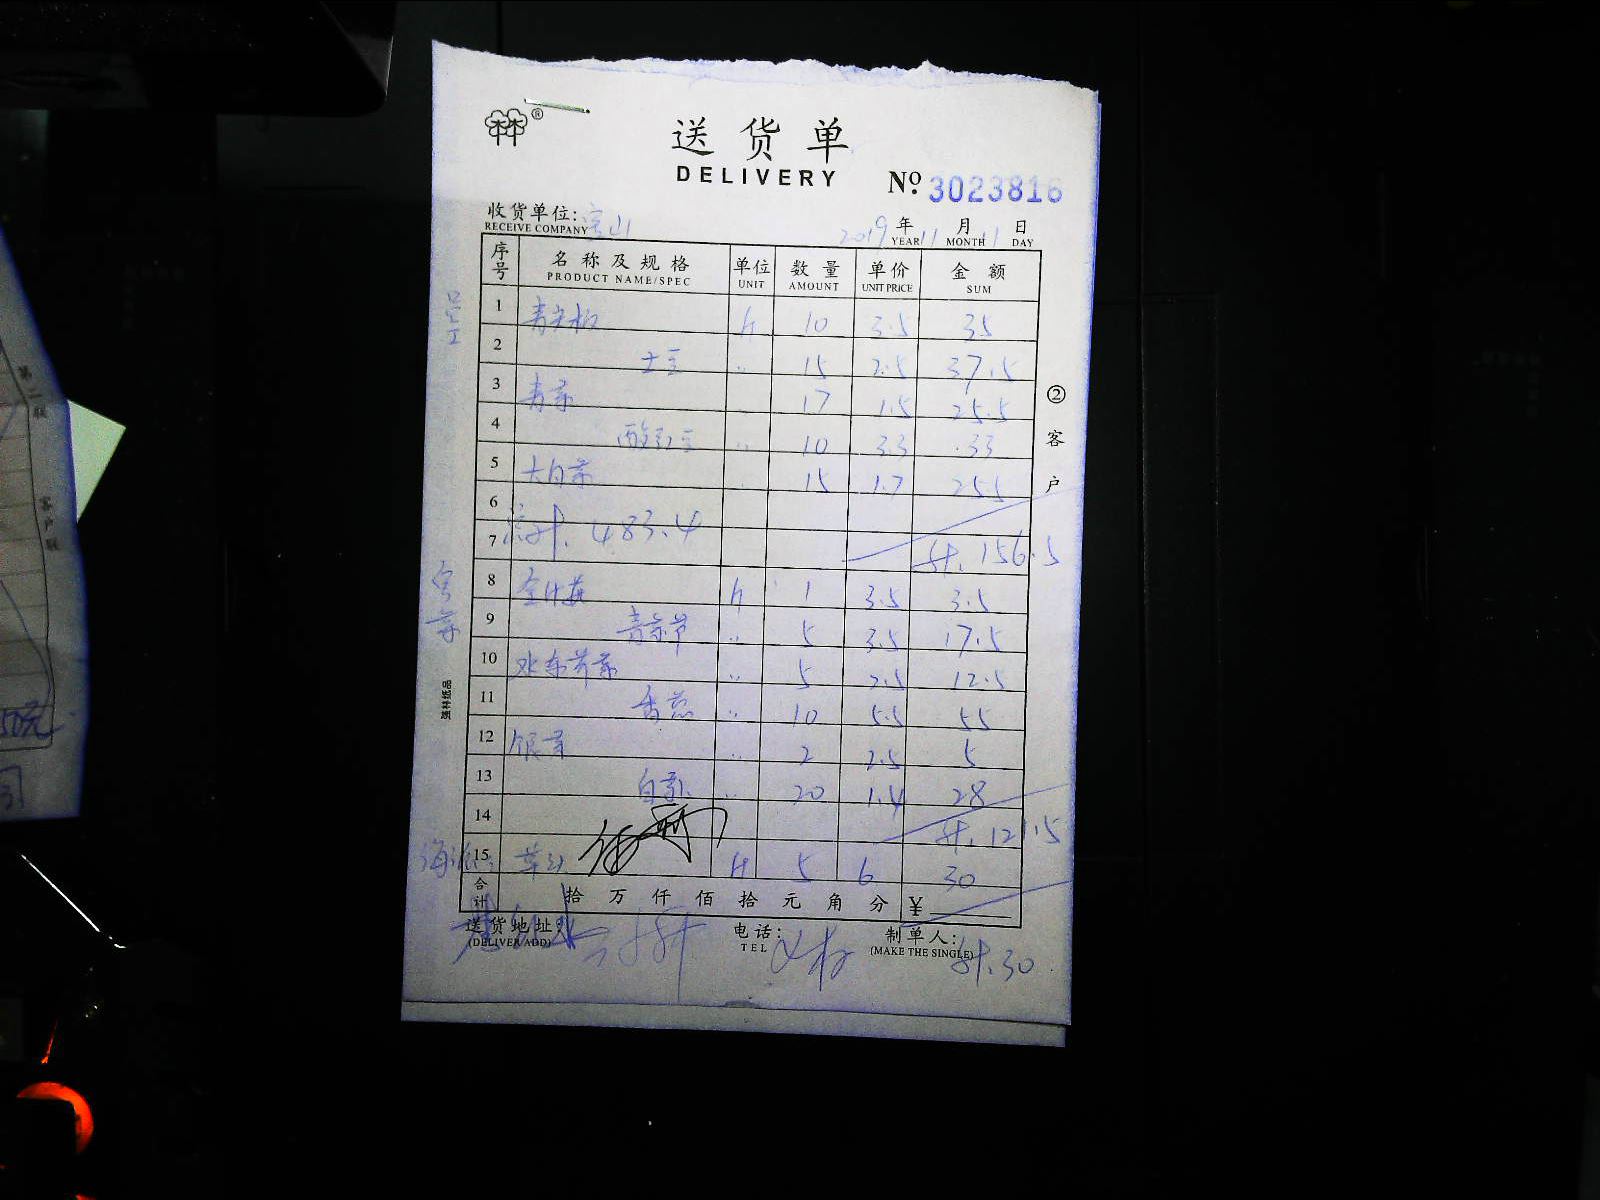 送货单
DELIVERY
№ 3023816
收货单位: 宝山 2019年11月11日
RECEIVE COMPANY YEAR MONTH DAY
序号 名称及规格 单位 数量 单价 金额
PRODUCT NAME/SPEC UNIT AMOUNT UNIT PRICE SUM
员工
1 青尖椒 斤 10 3.5 35
2 土豆 〃 15 2.5 37.5
3 青菜 17 1.5 25.5
4 酸豇豆 〃 10 3.3 33
5 大白菜 15 1.7 25.5
6
7 总计. 483.4 计. 156.5
8 斤 1 3.5 3.5
9 〃 5 3.5 17.5
10 水东芥菜 〃 5 2.5 12.5
11 香葱 〃 10 5.5 55
12 银芽 〃 2 2.5 5
13 白萝卜 〃 20 1.4 28
14 计. 121.5
15 斤 5 6 30
合计 拾 万 仟 佰 拾 元 角 分 ¥
送货地址:
(DELIVER ADD)
电话:
TEL
制单人:
(MAKE THE SINGLE)
计. 30
② 客户
强林纸品
第二联
客户联
50元